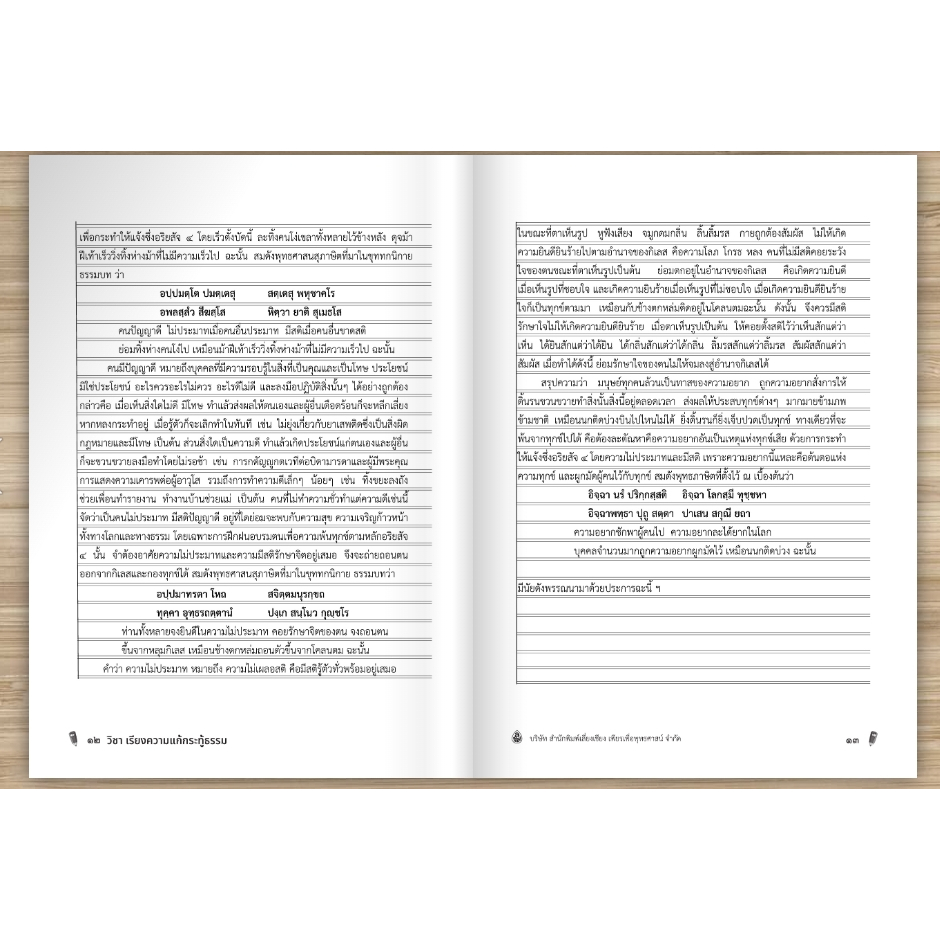 เพื่อกระทำให้แจ้งซึ่งอริยสัจ ๔ โดยเร็วดั้งบัดนี้ ละทิ้งคนโง่เขลาทั้งหลายไว้ข้างหลัง ดุจม้า
ฝีเท้าเร็ววิ่งทิ้งห่างม้าที่ไม่มีความเร็วไป ฉะนั้น สมดังพุทธศาสนสุภาษิตที่มาในขุททกนิกาย
ธรรมบท ว่า
อปฺปมตฺโต ปมตฺเตสุ สตฺเตสุ พหุชาคโร
อพลสฺสํว สีฆสฺโส หิตฺวา ยาติ สุเมธโส
คนปัญญาดี ไม่ประมาทเมื่อคนอื่นประมาท มีสติเมื่อคนอื่นขาดสติ
ย่อมทิ้งห่างคนโง่ไป เหมือนม้าฝีเท้าเร็ววิ่งทิ้งห่างม้าที่ไม่มีความเร็วไป ฉะนั้น
คนมีปัญญาดี หมายถึงบุคคลที่มีความรอบรู้ในสิ่งที่เป็นคุณและเป็นโทษ ประโยชน์
มิใช่ประโยชน์ อะไรควรอะไรไม่ควร อะไรดีไม่ดี และลงมือปฏิบัติสิ่งนั้นๆ ได้อย่างถูกต้อง
กล่าวคือ เมื่อเห็นสิ่งใดไม่ดี มีโทษ ทำแล้วส่งผลให้ตนเองและผู้อื่นเดือดร้อนก็จะหลีกเลี่ยง
หากหลงกระทำอยู่ เมื่อรู้ตัวก็จะเลิกทำในทันที เช่น ไม่ยุ่งเกี่ยวกับยาเสพติดซึ่งเป็นสิ่งผิด
กฎหมายและมีโทษ เป็นต้น ส่วนสิ่งใดเป็นความดี ทำแล้วเกิดประโยชน์แก่ตนเองและผู้อื่น
ก็จะขวนขวายลงมือทำโดยไม่รอช้า เช่น การกตัญญูกตเวทีต่อบิดามารดาและผู้มีพระคุณ
การแสดงความเคารพต่อผู้อาวุโส รวมถึงการทำความดีเล็กๆ น้อยๆ เช่น ทิ้งขยะลงถัง
ช่วยเพื่อนทำรายงาน ทำงานบ้านช่วยแม่ เป็นต้น คนที่ไม่ทำความชั่วทำแต่ความดีเช่นนี้
จัดว่าเป็นคนไม่ประมาท มีสติปัญญาดี อยู่ที่ใดย่อมจะพบกับความสุข ความเจริญก้าวหน้า
ทั้งทางโลกและทางธรรม โดยเฉพาะการฝึกฝนอบรมตนเพื่อความพ้นทุกข์ตามหลักอริยสัจ
๔ นั้น จำต้องอาศัยความไม่ประมาทและความมีสติรักษาจิตอยู่เสมอ จึงจะถ่ายถอนตน
ออกจากกิเลสและกองทุกข์ได้ สมดังพุทธศาสนสุภาษิตที่มาในขุททกนิกาย ธรรมบทว่า
อปฺปมาทรตา โหถ สจิตฺตมนุรกฺขถ
ทุคฺคา อุทฺธรถตฺตานํ ปงฺเก สนฺโนว กุญฺชโร
ท่านทั้งหลายจงยินดีในความไม่ประมาท คอยรักษาจิตของตน จงถอนตน
ขึ้นจากหลุมกิเลส เหมือนช้างตกหล่มถอนตัวขึ้นจากโคลนตม ฉะนั้น
คำว่า ความไม่ประมาท หมายถึง ความไม่เผลอสติ คือมีสติรู้ตัวทั่วพร้อมอยู่เสมอ
๑๒ วิชา เรียงความแก้กระทู้ธรรม
ในขณะที่ตาเห็นรูป หูฟังเสียง จมูกดมกลิ่น ลิ้นลิ้มรส กายถูกต้องสัมผัส ไม่ให้เกิด
ความยินดียินร้ายไปตามอำนาจของกิเลส คือความโลภ โกรธ หลง คนที่ไม่มีสติคอยระวัง
ใจของตนขณะที่ตาเห็นรูปเป็นต้น ย่อมตกอยู่ในอำนาจของกิเลส คือเกิดความยินดี
เมื่อเห็นรูปที่ชอบใจ และเกิดความยินร้ายเมื่อเห็นรูปที่ไม่ชอบใจ เมื่อเกิดความยินดียินร้าย
ใจก็เป็นทุกข์ตามมา เหมือนกับช้างตกหล่มติดอยู่ในโคลนตมฉะนั้น ดังนั้น จึงควรมีสติ
รักษาใจไม่ให้เกิดความยินดียินร้าย เมื่อตาเห็นรูปเป็นต้น ให้คอยตั้งสติไว้ว่าเห็นสักแต่ว่า
เห็น ได้ยินสักแต่ว่าได้ยิน ได้กลิ่นสักแต่ว่าได้กลิ่น ลิ้มรสสักแต่ว่าลิ้มรส สัมผัสสักแต่ว่า
สัมผัส เมื่อทำได้ดังนี้ ย่อมรักษาใจของตนไม่ให้จมลงสู่อำนาจกิเลสได้
สรุปความว่า มนุษย์ทุกคนล้วนเป็นทาสของความอยาก ถูกความอยากสั่งการให้
ดิ้นรนขวนขวายทำสิ่งนั้นสิ่งนี้อยู่ตลอดเวลา ส่งผลให้ประสบทุกข์ต่างๆ มากมายข้ามภพ
ข้ามชาติ เหมือนนกติดบ่วงบินไปไหนไม่ได้ ยิ่งดิ้นรนก็ยิ่งเจ็บปวดเป็นทุกข์ ทางเดียวที่จะ
พ้นจากทุกข์ไปได้ คือต้องละตัณหาคือความอยากอันเป็นเหตุแห่งทุกข์เสีย ด้วยการกระทำ
ให้แจ้งซึ่งอริยสัจ ๔ โดยความไม่ประมาทและมีสติ เพราะความอยากนี้แหละคือต้นตอแห่ง
ความทุกข์ และผูกมัดผู้คนไว้กับทุกข์ สมดังพุทธภาษิตที่ตั้งไว้ ณ เบื้องต้นว่า
อิจฺฉา นรํ ปริกสฺสติ อิจฺฉา โลกสฺมิ ทุชฺชหา
อิจฺฉาพทฺธา ปุถู สตฺตา ปาเสน สกุณี ยถา
ความอยากชักพาผู้คนไป ความอยากละได้ยากในโลก
บุคคลจำนวนมากถูกความอยากผูกมัดไว้ เหมือนนกติดบ่วง ฉะนั้น
มีนัยดังพรรณนามาด้วยประการฉะนี้ ฯ
บริษัท สำนักพิมพ์เลี่ยงเชียง เพียรเพื่อพุทธศาสน์ จำกัด
๑๓